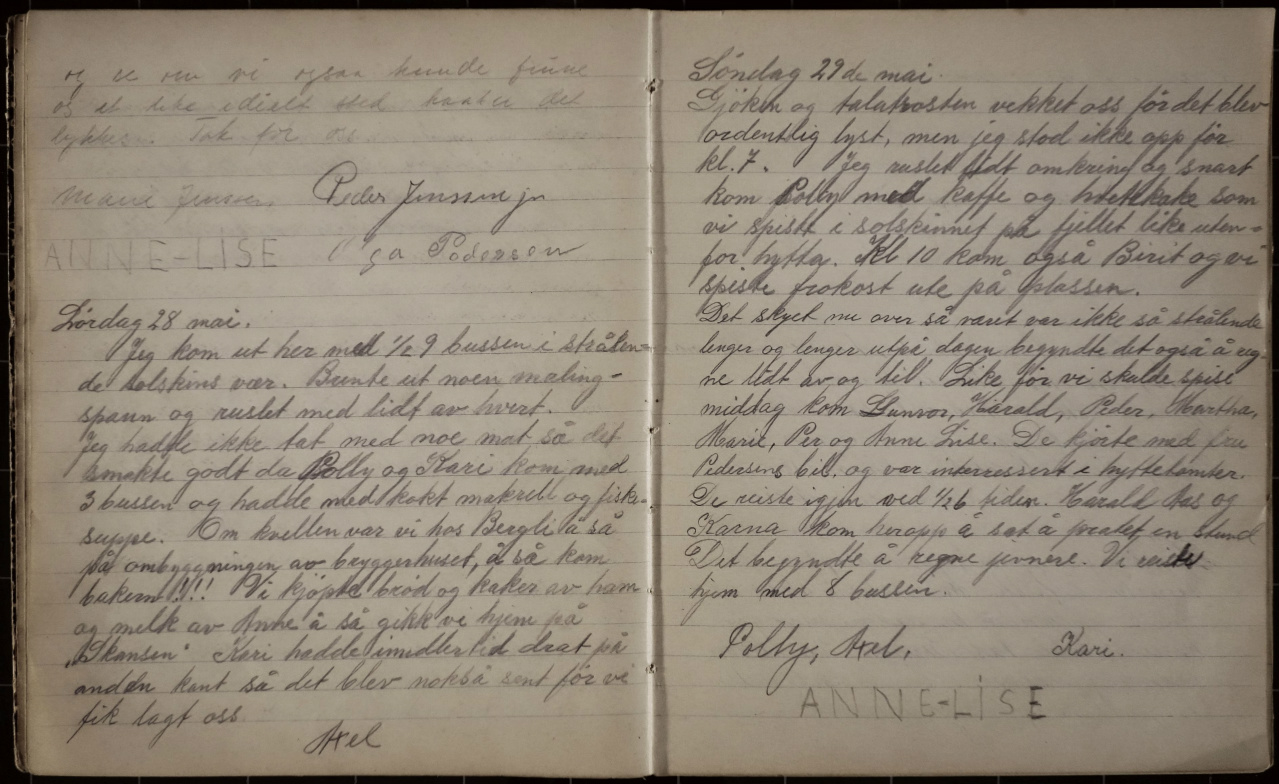 og se om vi ogsaa kunde finne
og et like idielt sted kanske det
lykkes. Tak for oss
Marie Jenssen Peder Jenssen jr
ANNE-LISE Olga Pedersen
Lørdag 28 mai.
Jeg kom ut her med 1/2 9 bussen i strålen=
de solskins vær. Bunte ut noen maling-
spann og ruslet med lidt av hvert.
Jeg hadde ikke tat med noe mat så det
smakte godt da Polly og Kari kom med
3 bussen og hadde med kokt makrell og fiske-
suppe. Om kvellen var vi hos Bergli å så
på ombyggningen av bryggerhuset, å så kom
bakern!!!! Vi kjøpte brød og kaker av ham
og melk av Anne å så gikk vi hjem på
"Skansen" Kari hadde imidlertid drat på
anden kant så det blev nokså sent før vi
fik lagt oss
Axel
Søndag 29de mai.
Gjøken og taltrosten vekket oss før det blev
ordentlig lyst, men jeg stod ikke opp før
kl. 7. Jeg ruslet lidt omkring og snart
kom Polly med kaffe og hvetekake som
vi spiste i solskinnet på fjellet like uten=
for hytta. Kl 10 kom også Birit og vi
spiste frokost ute på plassen.
Det skyet nu over så været var ikke så strålende
lenger og lenger utpå dagen begyndte det også å reg-
ne lidt av og til. Like før vi skulde spise
middag kom Gunvor, Harald, Peder, Martha,
Marie, Per og Anne Lise. De kjørte med fru
Pedersens bil. og var interressert i hyttetomter.
De reiste igjen ved 1/2 6 tiden. Harald Aas og
Karna kom heropp å sat å pratet en stund
Det begyndte å regne jevnere. Vi reiste
hjem med 8 bussen.
Polly, Axel, Kari.
ANNE-LISE